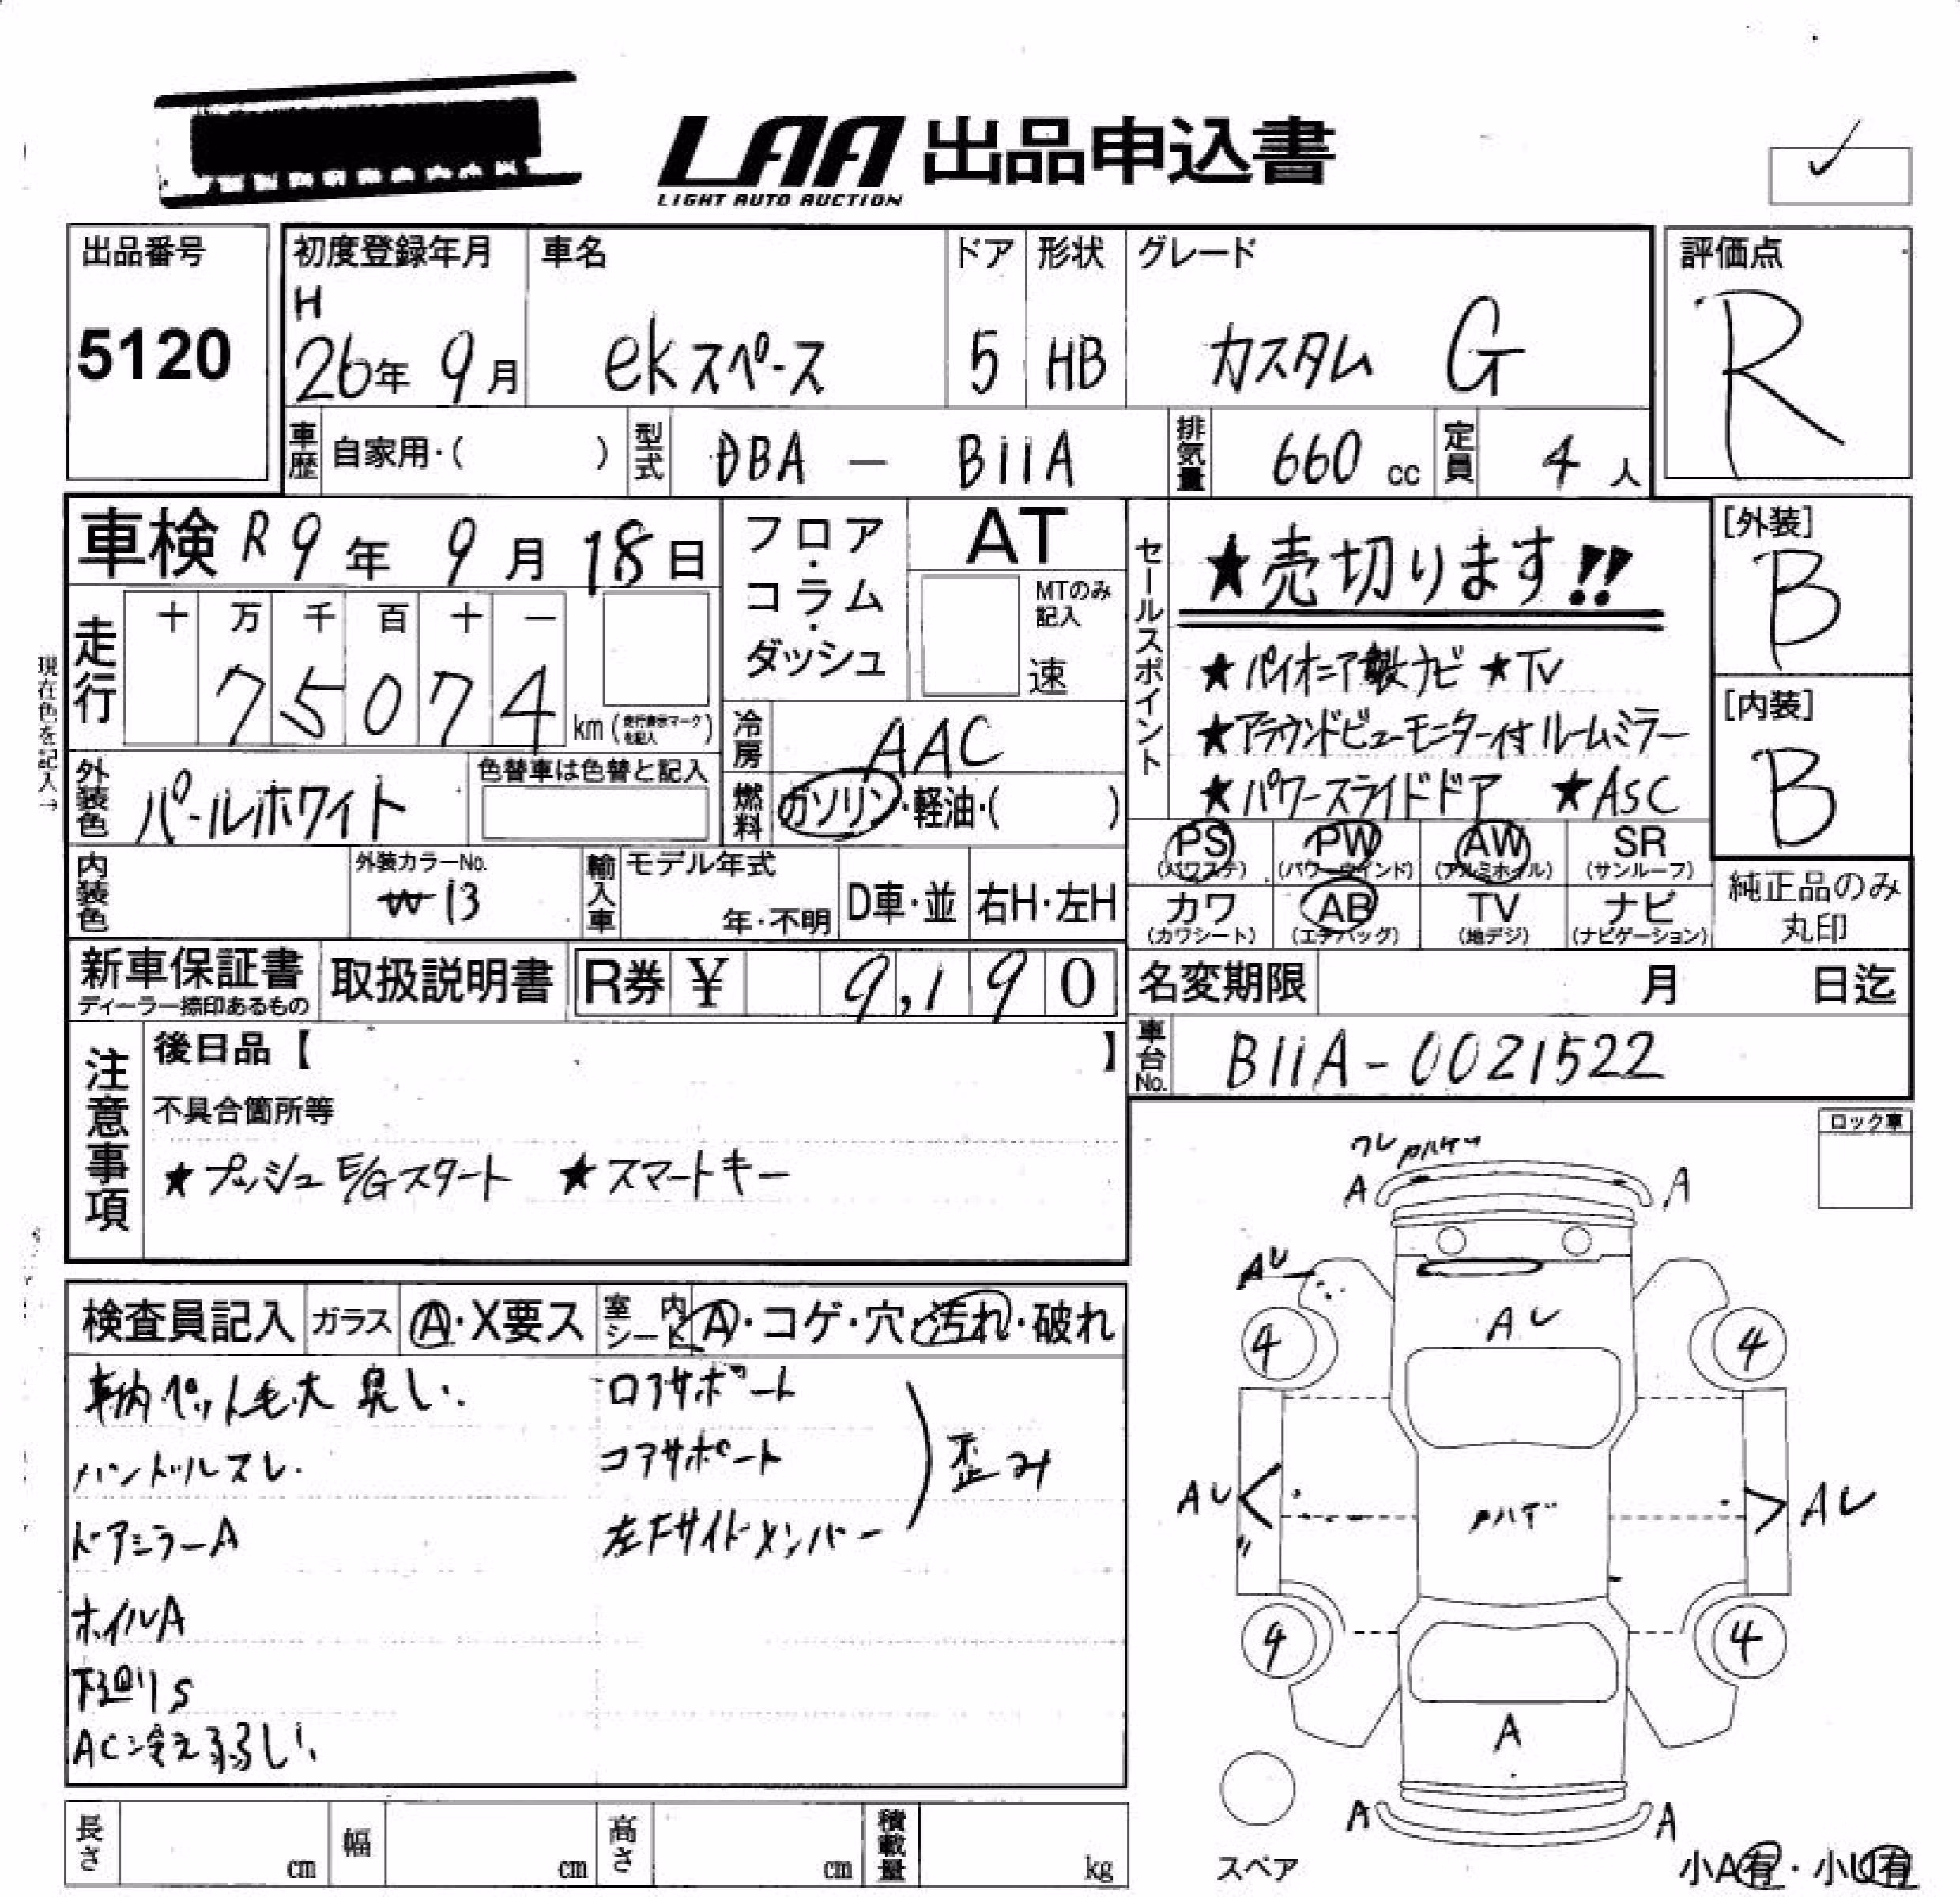 LAA 出品申込書
LIGHT AUTO AUCTION
出品番号
5120
初度登録年月
H
26年 9月
車名
ekスペース
ドア
5
形状
HB
グレード
カスタム G
評価点
R
車歴 自家用・( )
型式 DBA - B11A
排気量 660 cc
定員 4 人
車検 R9年 9月 18日
フロア・コラム・ダッシュ
AT
MTのみ記入
速
走行
十 万 千 百 十 一
7 5 0 7 4
km (走行表示マークを記入)
現在色を記入→
外装色 パールホワイト
色替車は色替と記入
冷房 AAC
燃料 ガソリン・軽油・( )
セールスポイント
★売切ります!!
★パイオニア製ナビ ★TV
★アラウンドビューモニター付ルームミラー
★パワースライドドア ★ASC
[外装]
B
[内装]
B
内装色
外装カラーNo.
W13
輸入車
モデル年式
年・不明
D車・並
右H・左H
PS
(パワステ)
PW
(パワーウインド)
AW
(アルミホイル)
SR
(サンルーフ)
カワ
(カワシート)
AB
(エアバッグ)
TV
(地デジ)
ナビ
(ナビゲーション)
純正品のみ
丸印
新車保証書
ディーラー捺印あるもの
取扱説明書
R券 ¥ 9,190
名変期限 月 日迄
車台No. B11A-0021522
注意事項
後日品【 】
不具合箇所等
★プッシュE/Gスタート ★スマートキー
ロック車
検査員記入
ガラス A・X要ス
室内シート A・コゲ・穴・汚れ・破れ
車内ペット毛大 臭し.
ハンドルスレ.
ドアミラーA
ホイルA
下廻りS
AC冷え弱るしい
ロアサポート
コアサポート
左下サイドメンバー
歪み
ワレ メハゲ
A
A
AU
AU
4
4
AU
メハゲ
AU
4
4
A
A
A
スペア
小A有・小U有
長さ cm
幅 cm
高さ cm
積載量 kg